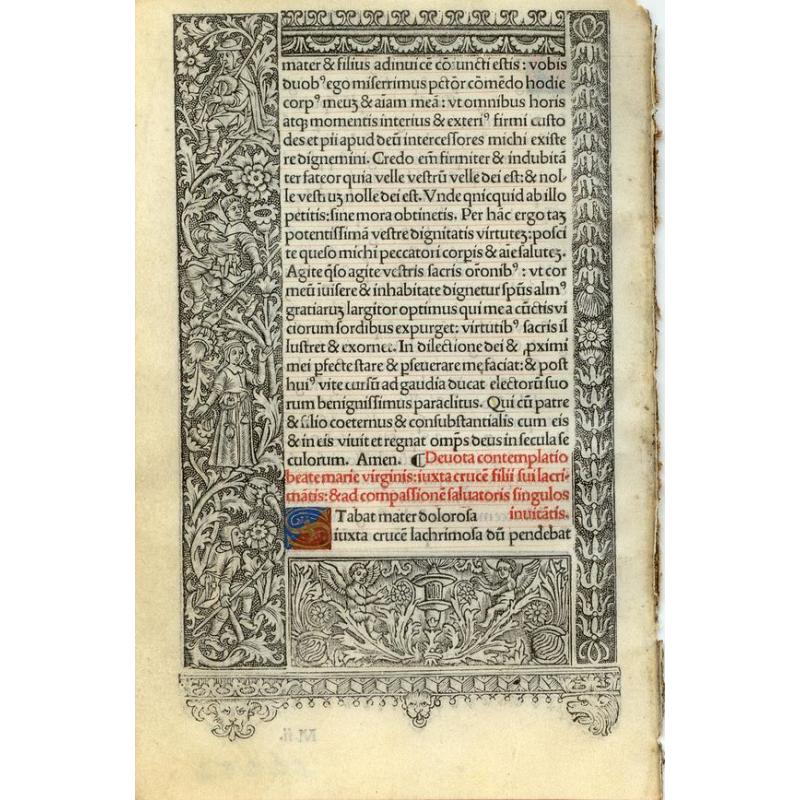 mater & filius adinuicē cōiuncti estis : vobis
duobꝰ ego miserrimus pctōr cōmēdo hodie
corpꝰ meuꝫ & aīam meā : vt omnibus horis
atqꝫ momentis interius & exteriꝰ firmi custo
des et pii apud deū intercessores michi existe
re dignemini. Credo em̄ firmiter & indubitā
ter fateor quia velle vestrū velle dei est: & nol-
le vestruꝫ nolle dei est. Vnde qnicquid ab illo
petitis: sine mora obtinetis. Per hāc ergo taꝫ
potentissimā vestre dignitatis virtuteꝫ: posci
te queso michi peccatori corpis & aīe saluteꝫ.
Agite q̄so agite vestris sacris orōnibꝰ : vt cor
meū īuisere & inhabitate dignetur spūs almꝰ
gratiaruꝫ largitor optimus qui me a cūctis vi
ciorum sordibus expurget: virtutibꝰ sacris il
lustret & exornet. In dilectione dei & ꝓximi
mei pfecte stare & pseuerare me faciat: & post
huiꝰ vite cursū ad gaudia ducat electorū suo
rum benignissimus paraclitus. Qui cū patre
& filio coeternus & consubstantialis cum eis
& in eis viuit et regnat omp̄s deus in secula se
culorum. Amen. ¶ Deuota contemplatio
beate marie virginis: iuxta crucē filii sui lacri-
mātis: & ad compassionē saluatoris singulos
inuitātis.
STabat mater dolorosa
iuxta crucē lachrimosa dū pendebat
M.ii.